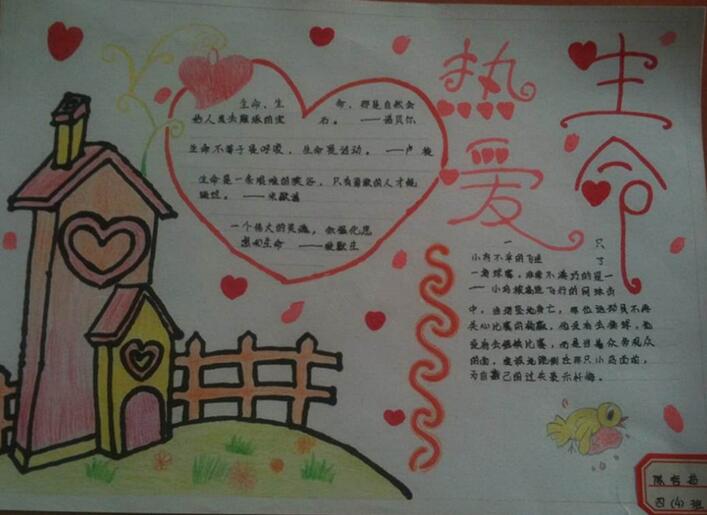 热爱
生命
生命、生 命，那是自然会
给人类去雕琢的宝 石。 ——诺贝尔
生命不等于是呼吸，生命是活动。——卢梭
生命是一条艰难的峡谷，只有勇敢的人才能
通过。 ——米歇潘
一个伟大的灵魂，会强化思
想和生命 ——爱默生
一 只
小鸟不幸的飞进了
一角球赛，
一 小鸟被高速飞行的网球击
中，当场坠地身亡，那位运动员不再
关心比赛的输赢，他没有去
没有去继续比赛，而是当着众多观众
的面，虔诚地跪倒在那只小鸟面前，
为自己的过失表示忏悔。
四(4)班